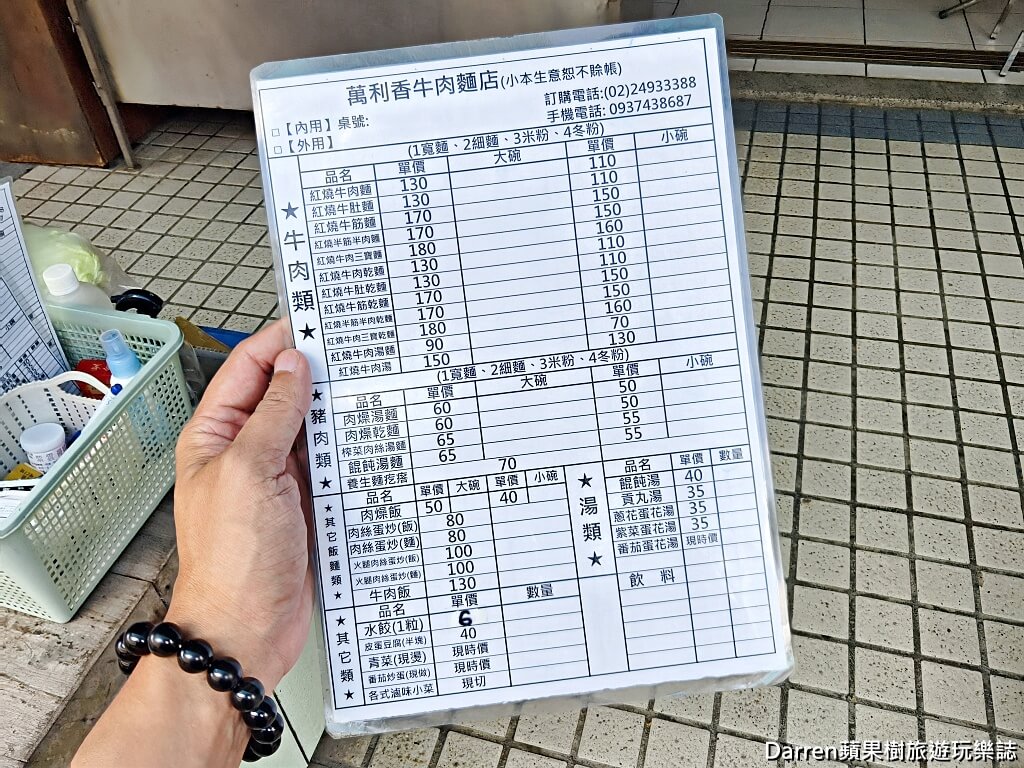 萬利香牛肉麵店(小本生意恕不賒帳)
訂購電話:(02)24933388
手機電話: 0937438687
□【內用】桌號:
□【外用】
★牛肉類★
(1寬麵、2細麵、3米粉、4冬粉)
品名 單價 大碗 單價 小碗
紅燒牛肉麵 130 110
紅燒牛肚麵 130 110
紅燒牛筋麵 170 150
紅燒半筋半肉麵 170 150
紅燒牛肉三寶麵 180 160
紅燒牛肉乾麵 130 110
紅燒牛肚乾麵 130 110
紅燒牛筋乾麵 170 150
紅燒半筋半肉乾麵 170 150
紅燒牛肉三寶乾麵 180 160
紅燒牛肉湯麵 90 70
紅燒牛肉湯 150 130
★豬肉類★
(1寬麵、2細麵、3米粉、4冬粉)
品名 單價 大碗 單價 小碗
肉燥湯麵 60 50
肉燥乾麵 60 50
榨菜肉絲湯麵 65 55
餛飩湯麵 65 55
養生麵疙瘩 70
★其它飯麵類★
品名 單價 大碗 單價 小碗
肉燥飯 50 40
肉絲蛋炒(飯) 80
肉絲蛋炒(麵) 80
火腿肉絲蛋炒(飯) 100
火腿肉絲蛋炒(麵) 100
牛肉飯 130
★其它類★
品名 單價 數量
水餃(1粒) 6
皮蛋豆腐(半塊) 40
青菜(現燙) 現時價
番茄炒蛋(現做) 現時價
各式滷味小菜 現切
★湯類★
品名 單價 數量
餛飩湯 40
貢丸湯 35
蔥花蛋花湯 35
紫菜蛋花湯 35
番茄蛋花湯 現時價
飲料
Darren蘋果樹旅遊玩樂誌